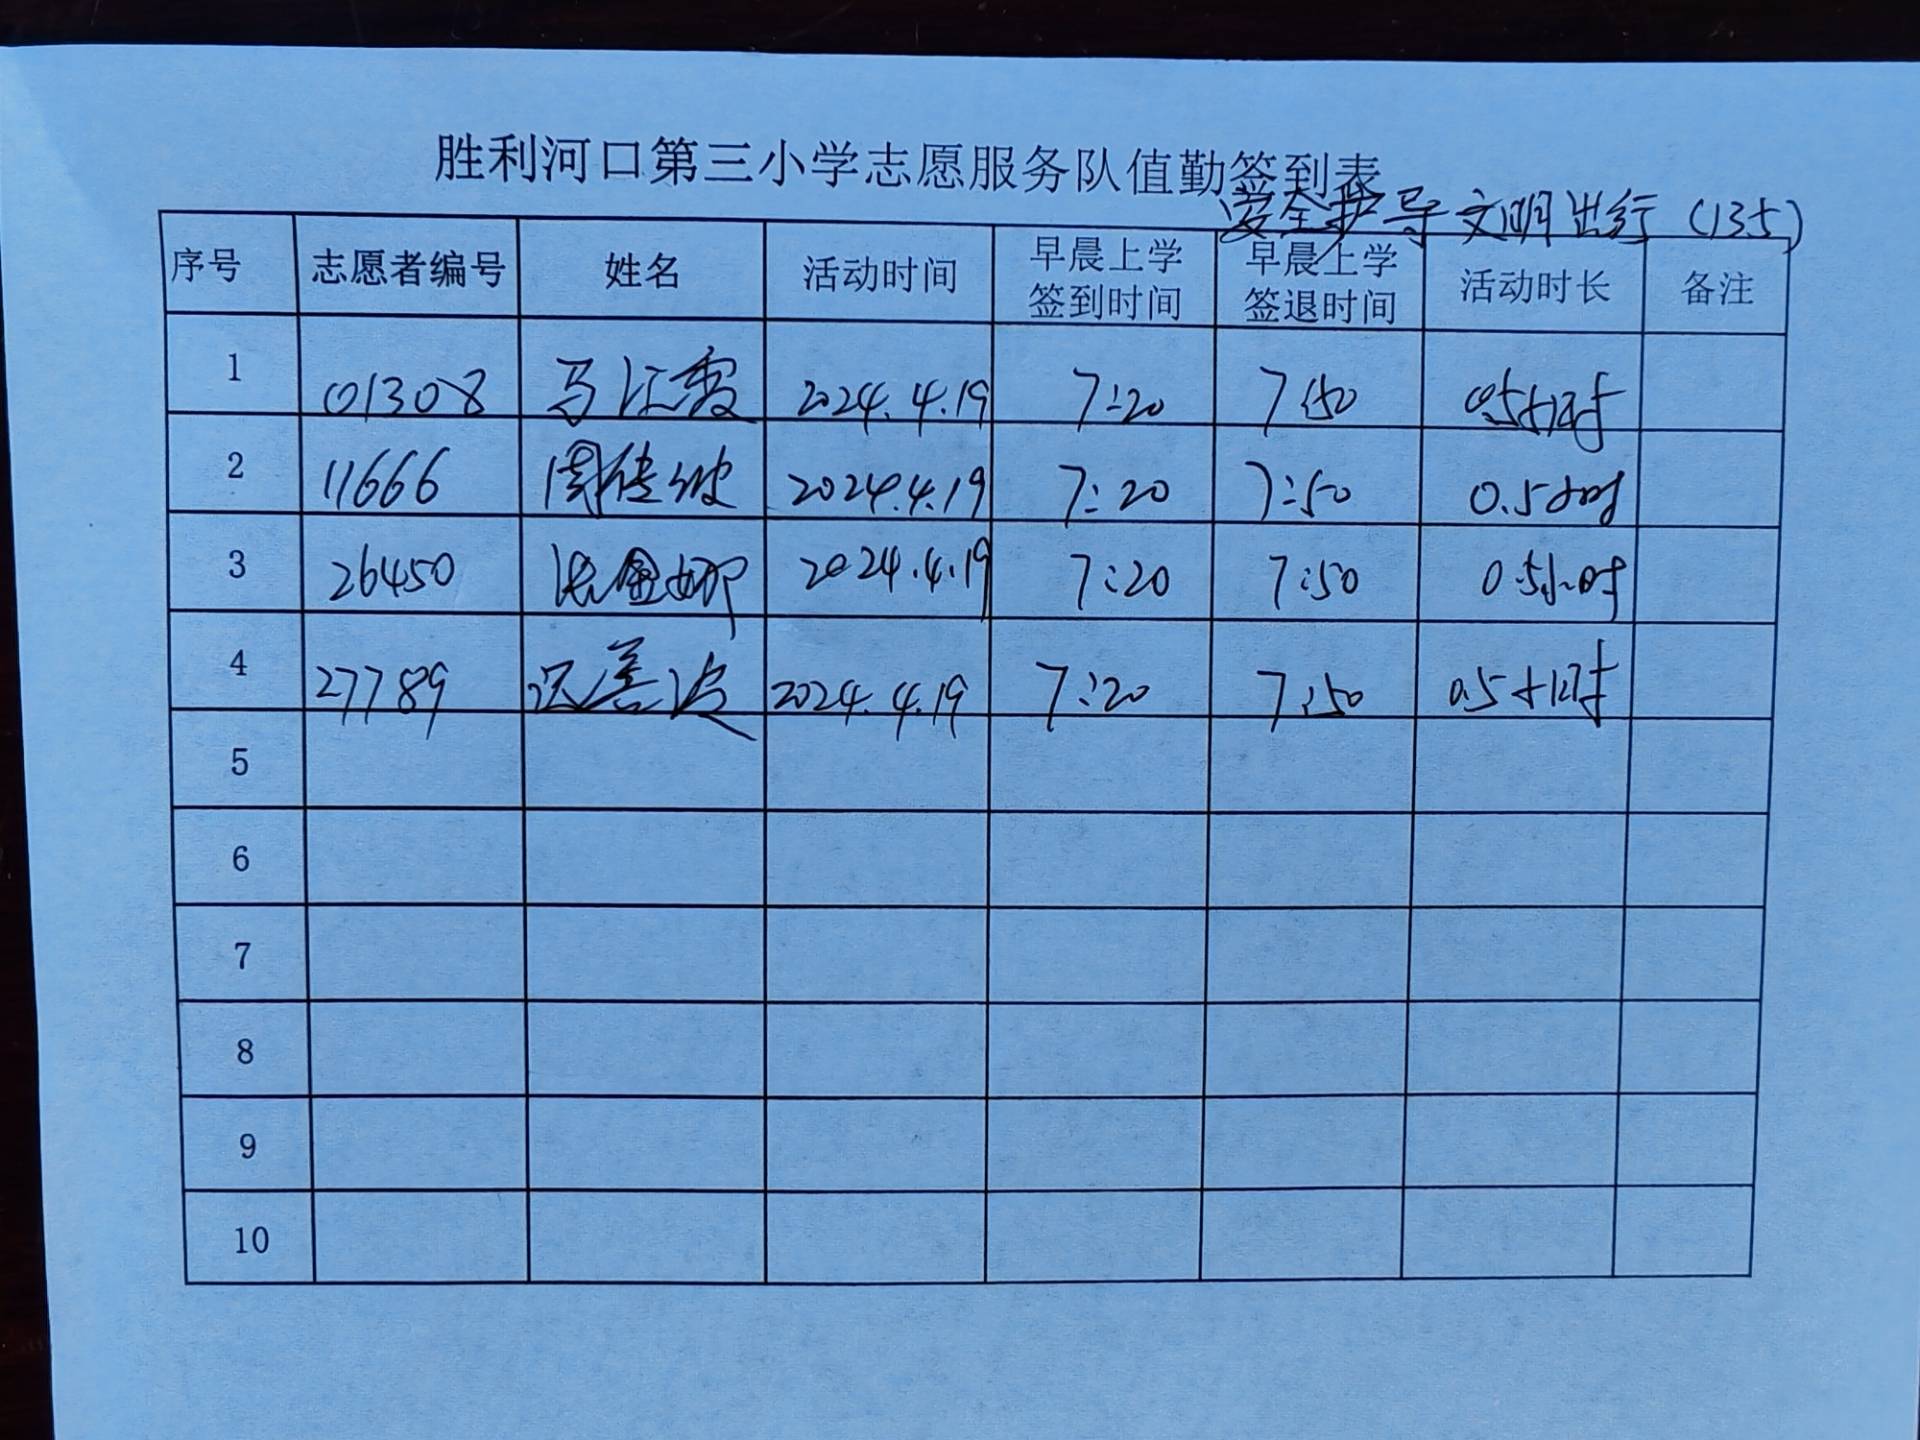 胜利河口第三小学志愿服务队值勤签到表
安全护导 文明出行 (135)
序号 志愿者编号 姓名 活动时间 早晨上学签到时间 早晨上学签退时间 活动时长 备注
1 01308 马江霞 2024.4.19 7:20 7:50 0.5小时
2 11666 周传波 2024.4.19 7:20 7:50 0.5小时
3 26450 2024.4.19 7:20 7:50 0.5小时
4 27789 2024.4.19 7:20 7:50 0.5小时
5
6
7
8
9
10